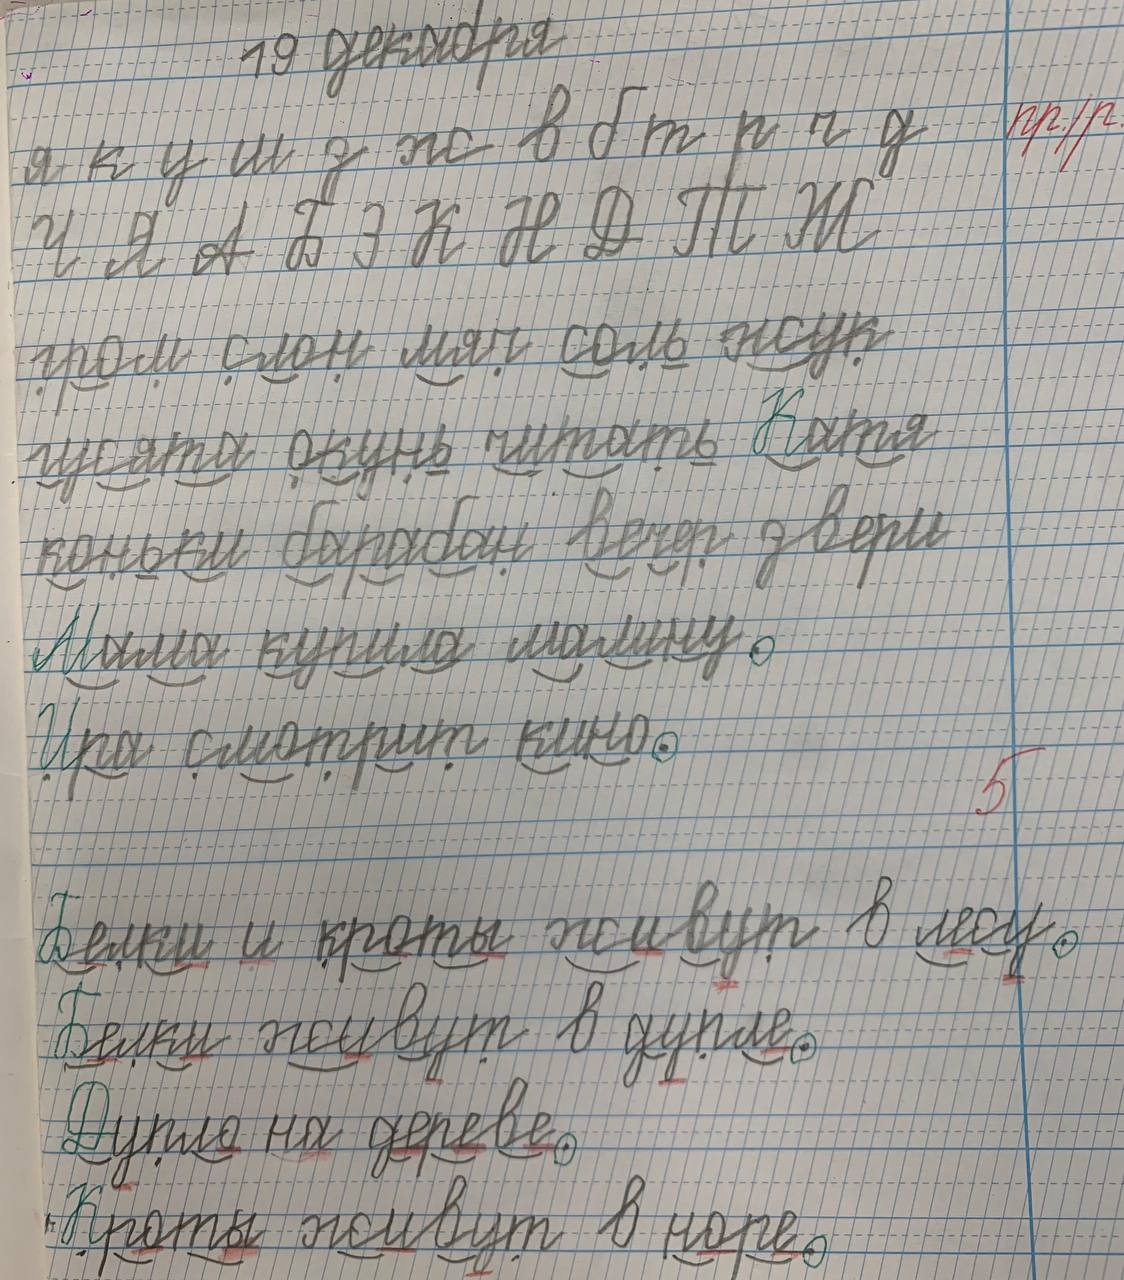 19 декабря
я к у ш з ж в б т р г д пр./р.
Ч Я А Б З К Н Д Т Ж
гром слон мяч соль жук
гусята окунь читать Катя
коньки барабан вечер звери
Мама купила малину.
Ира смотрит кино.
5
Белки и кроты живут в лесу.
Белки живут в дупле.
Дупло на дереве.
Кроты живут в норе.